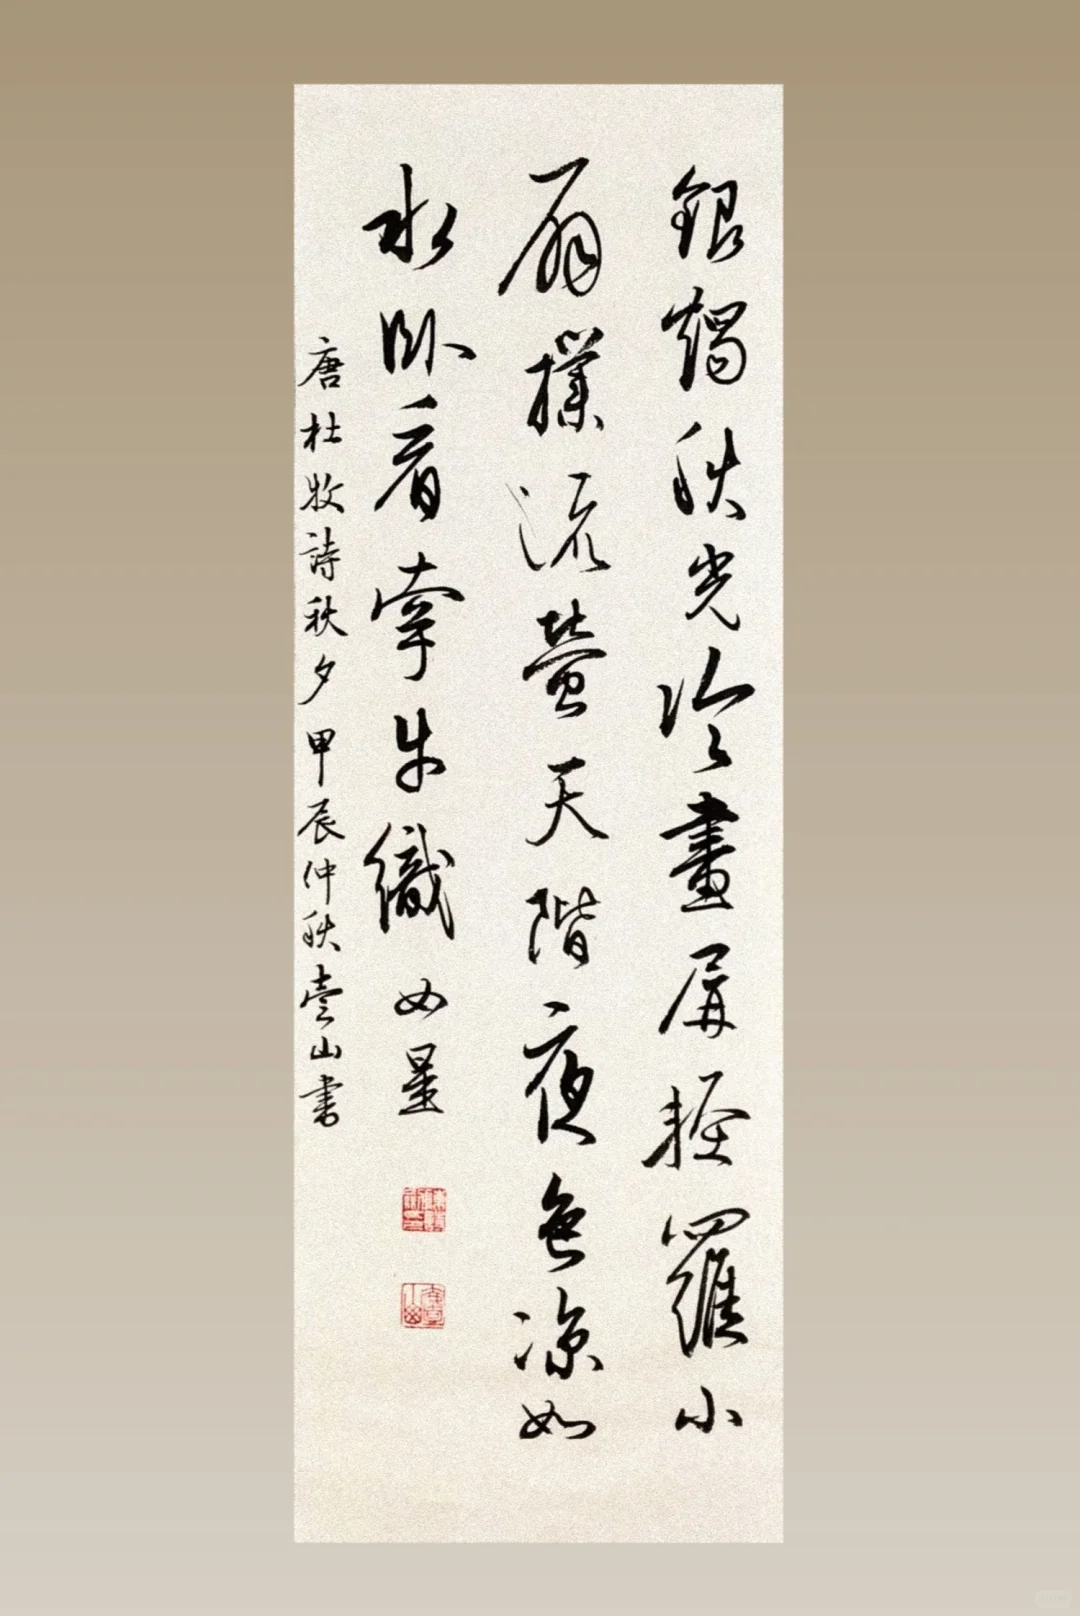 銀燭秋光冷畫屏輕羅小
扇撲流螢天階夜色涼如
水臥看牽牛織女星
唐杜牧詩秋夕甲辰仲秋壹山書